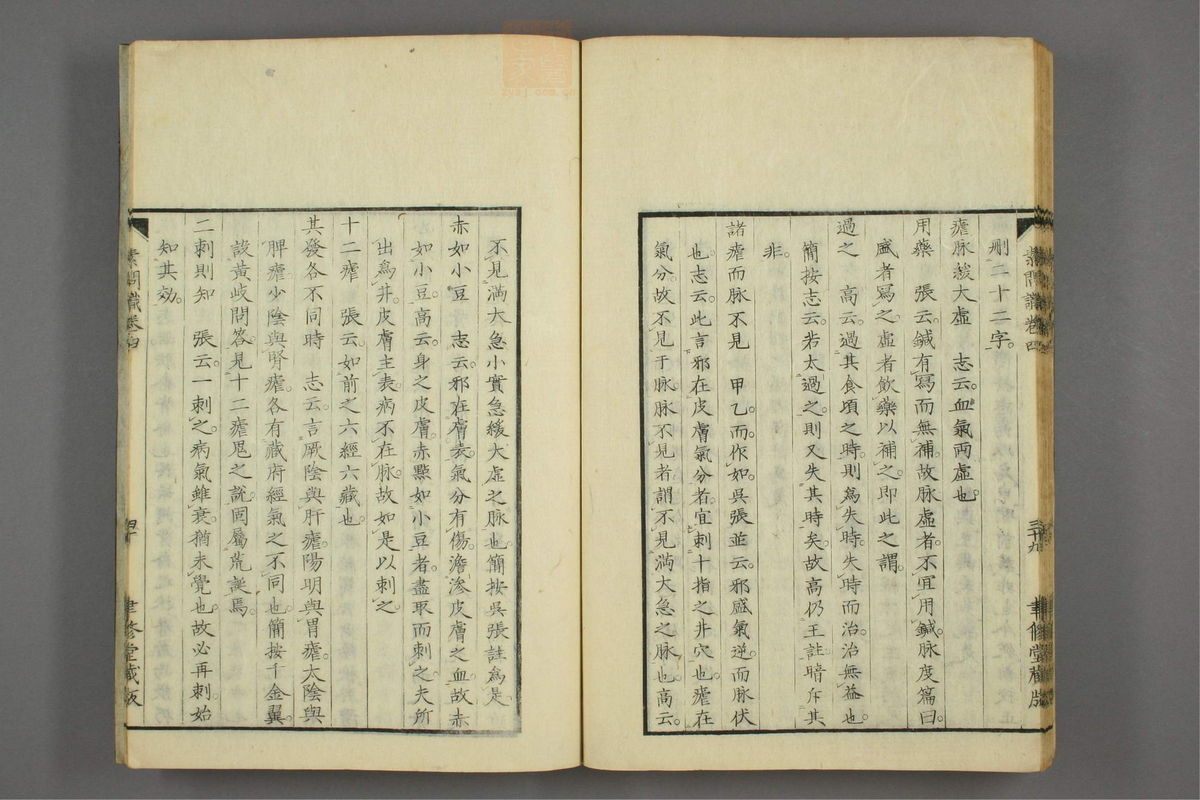 刪二十二字。
瘧脉緩大虛　志云。血氣兩虛也。
用藥　張云。鍼有寫而無補。故脉虛者。不宜用鍼。脉度篇曰。
盛者寫之。虛者飲藥以補之。即此之謂。
過之　高云。過其食頃之時。則為失時。失時而治。治無益也。
簡按志云。若太過之。則又失其時矣。故高仍王註。暗斥其
非。
諸瘧而脉不見　甲乙。而。作如。吳張並云。邪盛氣逆。而脉伏
也。志云。此言邪在皮膚氣分者。宜刺十指之井穴也。瘧在
氣分。故不見于脉。脉不見者。謂不見滿大急之脉也。高云。
素問識卷四
三十九
聿修堂藏版
不見滿大急小實急緩大虛之脉也。簡按吳張註為是。
赤如小豆　志云。邪在膚表氣分。有傷澹滲皮膚之血。故赤
如小豆。高云。身之皮膚。赤點如小豆者。盡取而刺之。夫所
出為井。皮膚主表。病不在脉。故如是以刺之
十二瘧　張云。如前之六經六藏也。
其發各不同時　志云。言厥陰與肝瘧。陽明與胃瘧。太陰與
脾瘧。少陰與腎瘧。各有藏府經氣之不同也。簡按千金翼。
設黃歧問答。見十二瘧鬼之說。固屬荒誕焉。
二刺則知　張云。一刺之。病氣雖衰。猶未覺也。故必再刺。始
知其效。
素問識卷四
四十
聿修堂藏版